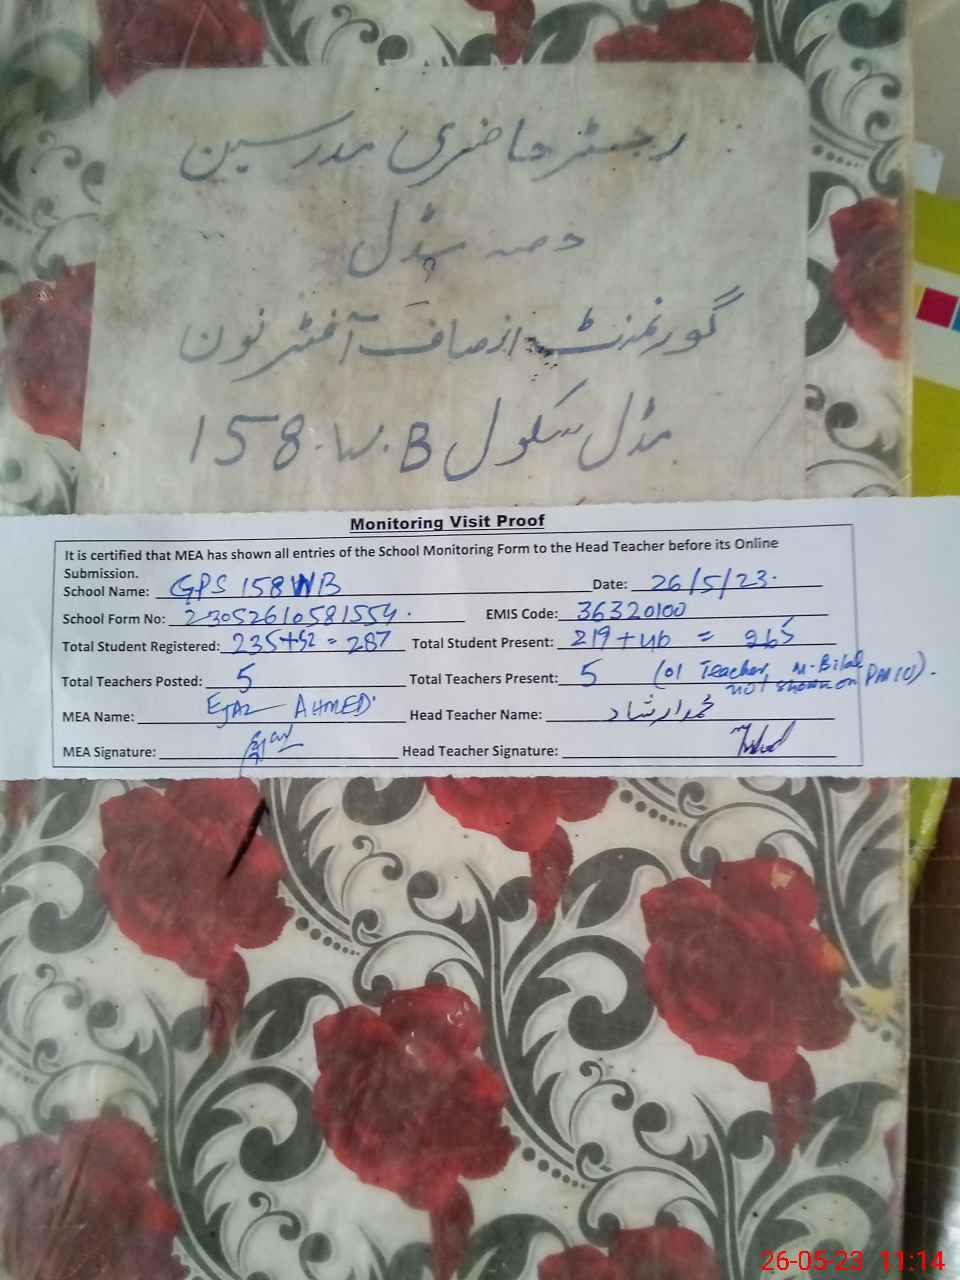 رجسٹر حاضری مدرسین
حصہ مڈل
گورنمنٹ انصاف آفٹر نون
مڈل سکول 158.W.B
Monitoring Visit Proof
It is certified that MEA has shown all entries of the School Monitoring Form to the Head Teacher before its Online
Submission.
School Name: GPS 158 WB Date: 26/5/23.
School Form No: 23052610581554. EMIS Code: 36320100
Total Student Registered: 235+52 = 287 Total Student Present: 219+46 = 265
Total Teachers Posted: 5 Total Teachers Present: 5 (01 Teacher, M. Bilal
not shown on PMIU).
MEA Name: EJAZ AHMED. Head Teacher Name: محمد ارشاد
MEA Signature: Head Teacher Signature:
26-05-23 11:14